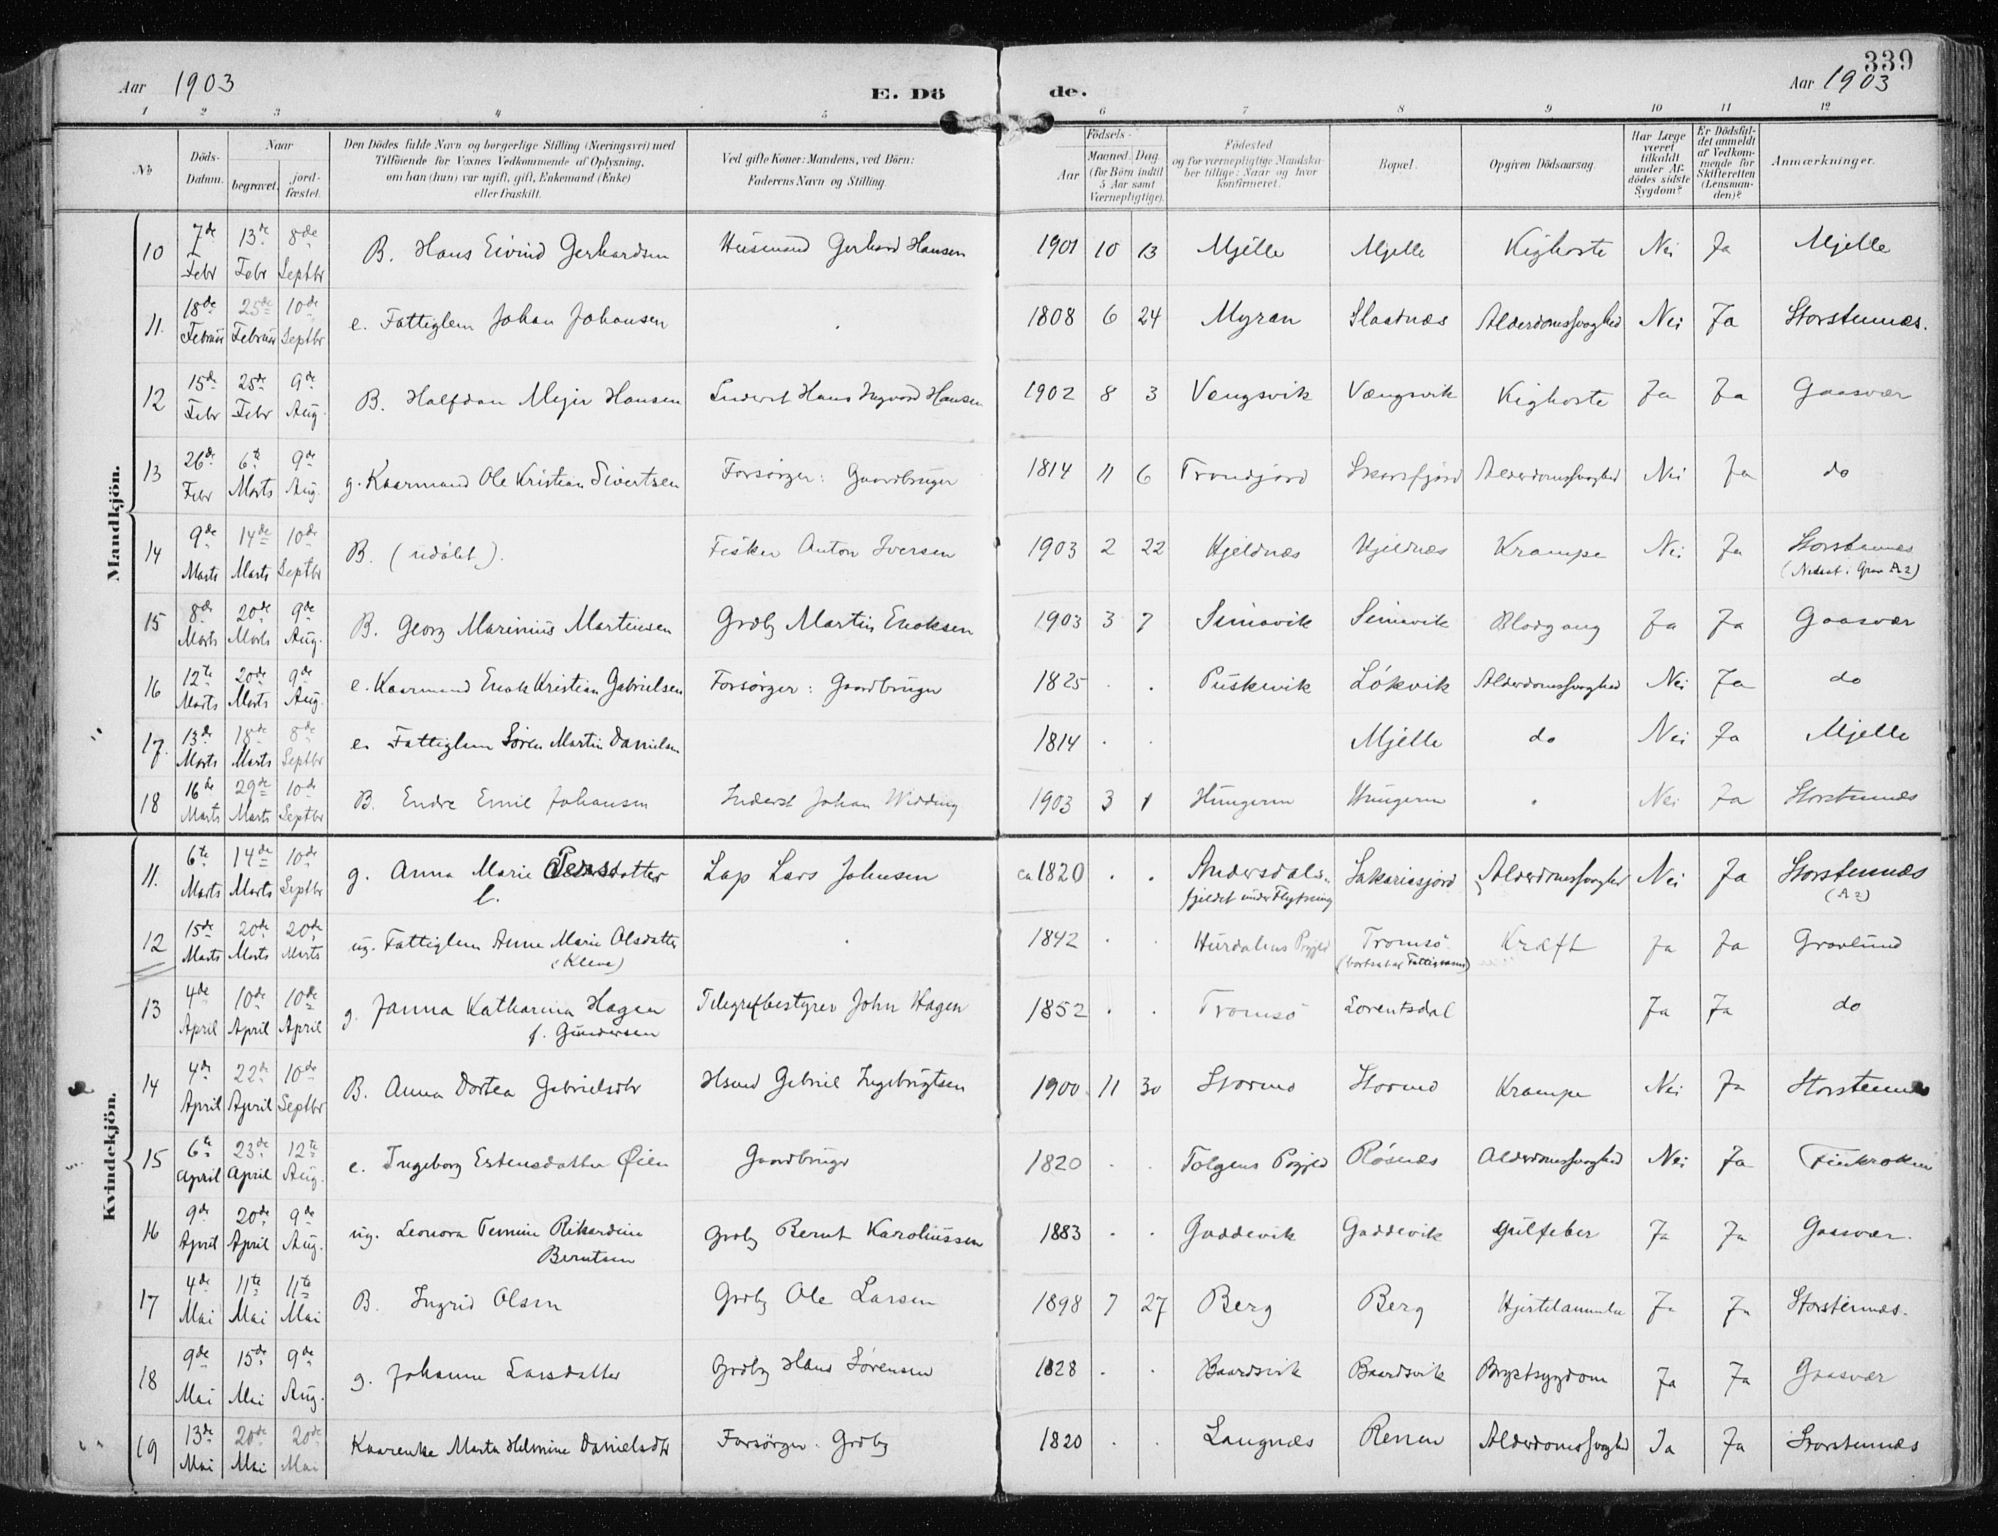 339
Aar 1903
E. Döde.
Aar 1903
1 2 3 4 5 6 7 8 9 10 11 12
No
Döds-Datum.
Naar
begravet.
jordfæstet.
Den Dödes fulde Navn og borgerlige Stilling (Næringsvei) med
Tilföiende for Voxnes Vedkommende af Oplysning,
om han (hun) var ugift, gift, Enkemand (Enke)
eller fraskilt.
Ved gifte Koner: Mandens, ved Börn:
Faderens Navn og Stilling.
Födsels-
Aar
Maaned. Dag.
(for Börn indtil
5 Aar samt
Værnepligtige).
Födested
og for værnepligtige Mandskaber tillige: Naar og hvor
konfirmeret.
Bopæl.
Opgiven Dödsaarsag.
Har Læge
været
tilkaldt
under Afdödes sidste
Sygdom?
Er Dödsfaldet anmeldt
af Vedkommende for
Skifteretten
(Lensmanden)?
Anmærkninger.
Mandkjön.
10 7de Febr 13de Febr 8de Septbr B. Hans Eivind Gerhardsen Husmand Gerhard Hansen 1901 10 13 Mjelle Mjelle Kighoste Nei Ja Mjelle
11. 18de Februar 25de Februar 10de Septbr e. Fattiglem Johan Johansen . 1808 6 24 Myran Slaatnæs Alderdomssvaghed Nei Ja Storstennæs.
12 15de Febr 25de Febr 9de Aug. B. Halfdan Mejer Hansen Inderst Hans Ingvard Hansen 1902 8 3 Vengsvik Vængsvik Kighoste Ja Ja Gaasvær
13 26de Febr 6te Marts 9de Aug. g. Kaarmand Ole Kristian Sivertsen Forsörger: Gaardbruger 1814 11 6 Trondjord Skarsfjord Alderdomssvaghed Nei Ja do
14 9de Marts 14de Marts 10de Septbr B. (udöbt). Fisker Anton Iversen 1903 2 22 Hjeldnæs Hjeldnæs Krampe Nei Ja Storstennæs
(Nedsat i Grav A2)
15 8de Marts 20de Marts 9de Aug. B. Georg Marinius Martinsen Grdbg Martin Enoksen 1903 3 7 Simavik Simavik Blodgang Ja Ja Gaasvær
16 12te Marts 20de Marts 9de Aug. e. Kaarmand Enok Kristian Gabrielsen Forsörger: Gaardbruger 1825 . . Puskevik Løkvik Alderdomssvaghed Nei Ja do
17. 13de Marts 18de Marts 8de Septbr e. Fattiglem Søren Martin Danielsen 1814 . . Mjelle do Nei Ja Mjelle
18 16de Marts 29de Marts 10de Septbr B. Endre Emil Johansen Inderst Johan Widding 1903 3 1 Hungeren Hungeren . Nei Ja Storstennæs
Kvindekjön.
11. 6te Marts 14de Marts 10de Septbr g. Anna Marie Persdatter Lap Lars Johnsen ca 1820 . . Andersdals- Sakariasjord Alderdomssvaghed Nei Ja Storstennæs
l. fjeldet under Flytning (A2)
12 15de Marts 20de Marts 20de Marts ug. Fattiglem Anne Marie Olsdatter . 1842 . . Hurdalens Prgjld Tromsö Kræft Ja Ja Gravlund
(Kleve) (bortsat af Fattigvæsen)
13 4de April 10de April 10de April g. Janna Katharina Hagen Telegrafbestyrer John Hagen 1852 . . Tromsö Lorentsdal Ja Ja do
f. Gundersen
14 4de April 22de April 10de Septbr B. Anna Dortea Gabrielsdtr Hsmd Gabriel Ingebrigtsen 1900 11 30 Stormo Stormo Krampe Nei Ja Storstennæs
15 6te April 23de April 12te Aug. e. Ingeborg Estensdatter Øien Gaardbruger 1820 . . Tolgens Prgjld Røsnæs Alderdomssvaghed Nei Ja Finkroken
16 9de April 20de April 9de Aug. ug. Leonora Femine Rikardine Grdbg Bernt Karoliussen 1883 . . Gaddevik Gaddevik Gulfeber Ja Ja Gaasvær.
Berntsen
17 4de Mai 11te Mai 11te Mai B. Ingrid Olsen Grdbg Ole Larsen 1898 7 27 Berg Berg Hjertelammelse Ja Ja Storstennæs.
18 9de Mai 15de Mai 9de Aug. g. Johanne Larsdatter Grdbg Hans Sørensen 1828 . . Baardsvik Baardsvik Brystsygdom Ja Ja Gaasvær
19 13de Mai 20de Mai 20de Mai Kaarenke Marta Helmine Danielsdtr Forsörger: Grdbg 1820 . . Langnæs Renen Alderdomssvaghed Ja Ja Storstennæs